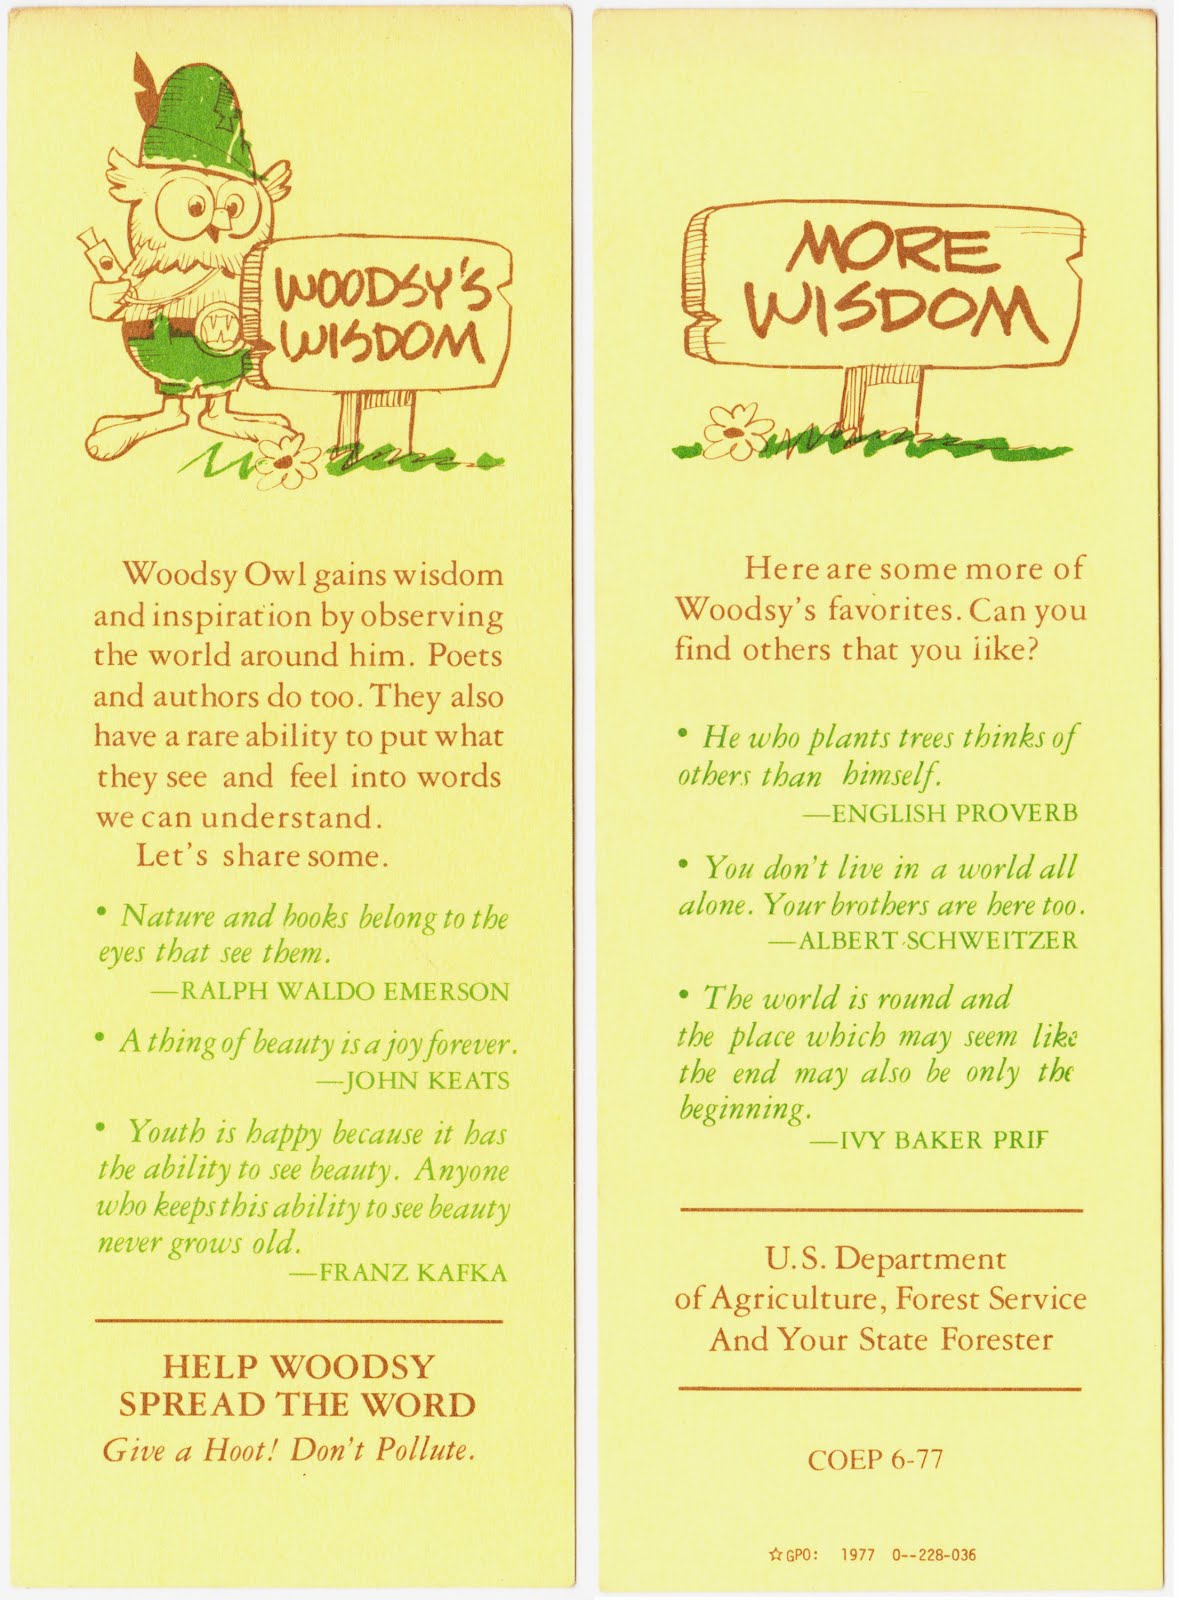 WOODSY'S
WISDOM
W
Woodsy Owl gains wisdom
and inspiration by observing
the world around him. Poets
and authors do too. They also
have a rare ability to put what
they see and feel into words
we can understand.
Let's share some.
• Nature and books belong to the
eyes that see them.
—RALPH WALDO EMERSON
• A thing of beauty is a joy forever.
—JOHN KEATS
• Youth is happy because it has
the ability to see beauty. Anyone
who keeps this ability to see beauty
never grows old.
—FRANZ KAFKA
HELP WOODSY
SPREAD THE WORD
Give a Hoot! Don't Pollute.
MORE
WISDOM
Here are some more of
Woodsy's favorites. Can you
find others that you like?
• He who plants trees thinks of
others than himself.
—ENGLISH PROVERB
• You don't live in a world all
alone. Your brothers are here too.
—ALBERT SCHWEITZER
• The world is round and
the place which may seem like
the end may also be only the
beginning.
—IVY BAKER PRIF
U.S. Department
of Agriculture, Forest Service
And Your State Forester
COEP 6-77
☆GPO: 1977 O--228-036